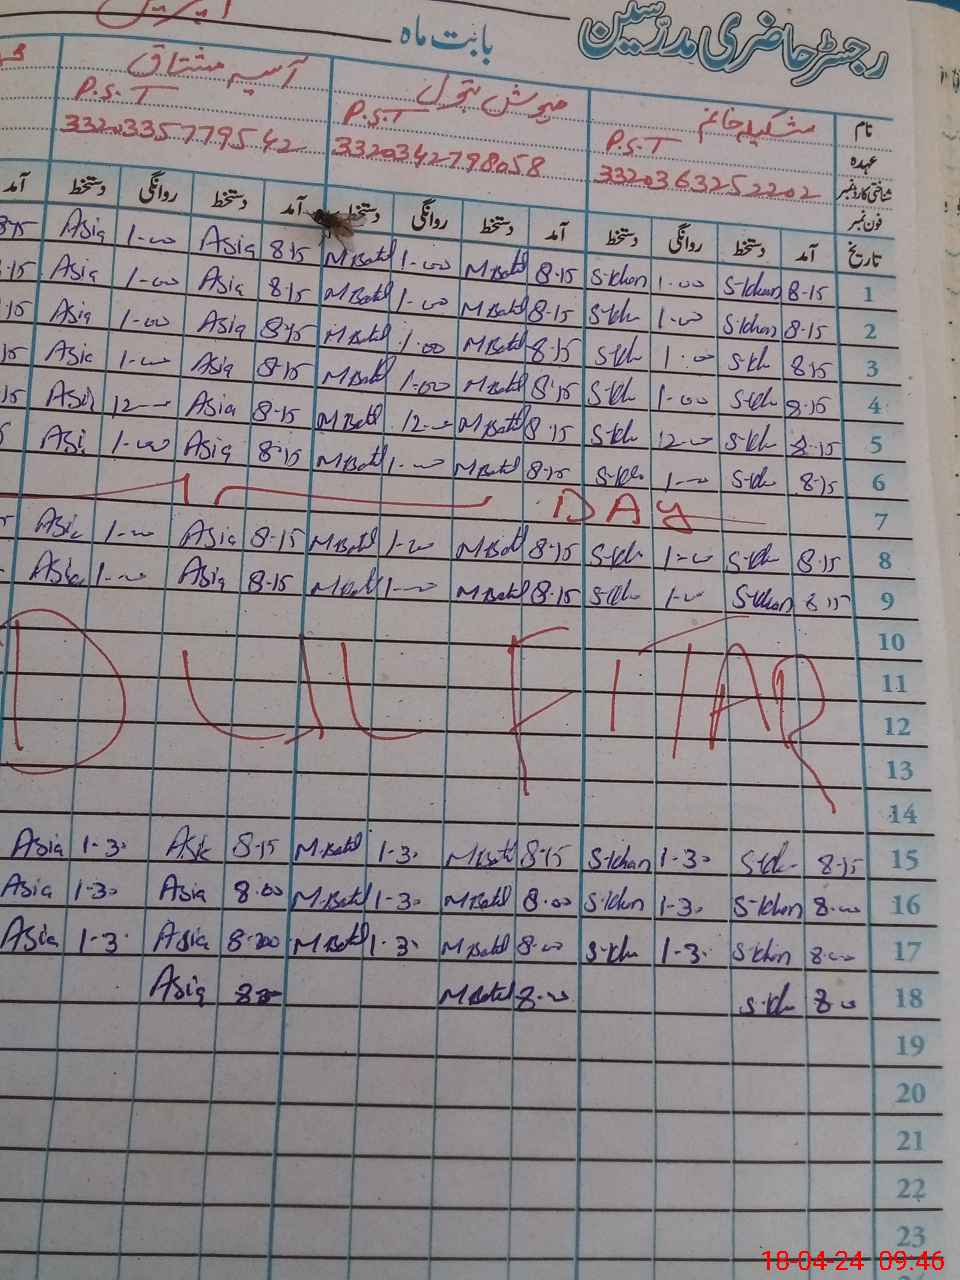 رجسٹر حاضری مدرسین بابت ماہ اپریل
نام مشکیلہ خانم مہوش بتول آسیہ مشتاق
عہدہ P.S.T P.S.T P.S.T
شناختی کارڈ نمبر 3320363252202 3320342798058 3320335779542
فون نمبر
تاریخ آمد دستخط روانگی دستخط آمد دستخط روانگی دستخط آمد دستخط روانگی دستخط آمد
1 8-15 S-khan 1-00 S-khan 8-15 M.Batul 1-00 M.Batul 8-15 Asia 1-00 Asia 8-15
2 8-15 S-khan 1-00 S-kh 8-15 M.Batul 1-00 M.Batul 8-15 Asia 1-00 Asia -15
3 8-15 S-kh 1-00 S-kh 8-15 M.Batul 1-00 M.Batul 8-15 Asia 1-00 Asia 15
4 8-15 S-kh 1-00 S-kh 8-15 M.Batul 1-00 M.Batul 8-15 Asia 1-00 Asia 15
5 8-15 S-kh 12-00 S-kh 8-15 M.Batul 12-00 M.Batul 8-15 Asia 12-00 Asia 15
6 8-15 S-kh 1-00 S-kh 8-15 M.Batul 1-00 M.Batul 8-15 Asia 1-00 Asi 5
7 DAY
8 8-15 S-kh 1-00 S-kh 8-15 M.Batul 1-00 M.Batul 8-15 Asia 1-00 Asia 5
9 8-15 S-khan 1-00 S-kh 8-15 M.Batul 1-00 M.Batul 8-15 Asia 1-00 Asia
10
11 DUL FITAR
12
13
14
15 8-15 S-kh 1-30 S-khan 8-15 M.Batul 1-30 M.Batul 8-15 Asia 1-30 Asia
16 8-00 S-khan 1-30 S-khan 8-00 M.Batul 1-30 M.Batul 8-00 Asia 1-30 Asia
17 8-00 S-khan 1-30 S-kh 8-00 M.Batul 1-30 M.Batul 8-00 Asia 1-30 Asia
18 8-00 S-kh 8-00 M.Batul 8-00 Asia
19
20
21
22
23
18-04-24 09:46